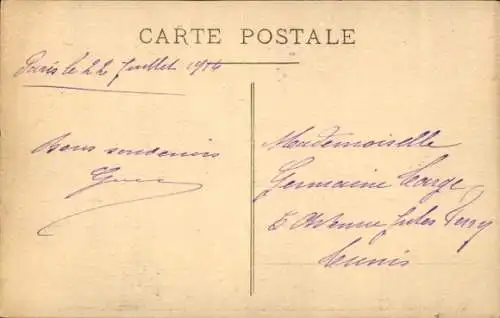 CARTE POSTALE
Paris le 22 Juillet 1914
Bons souvenirs
Mademoiselle
Germaine
Avenue Jules Ferry
Tunis